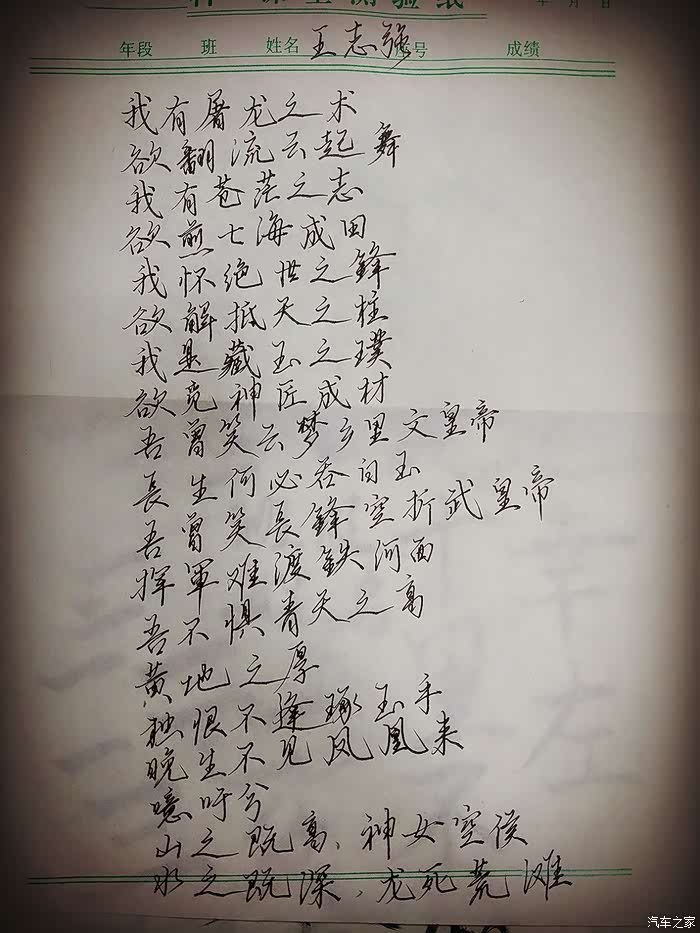 科 课堂测验纸 年 月 日
年段 班 姓名 王志强 座号 成绩
我有屠龙之术
欲翻流云起舞
我有苍茫之志
欲煎七海成田
我怀绝世之鋒
欲解抵天之柱
我是藏玉之璞
欲竞神匠成材
吾曾笑云梦乡里文皇帝
長生何必吞白玉
吾曾笑長鋒空折武皇帝
挥軍难渡鉄河面
吾不惧青天之高
黄地之厚
独恨不逢琢玉手
晚生不见凤凰来
噫吁兮
山之既高、神女空侯
水之既深、龙死荒滩
汽车之家